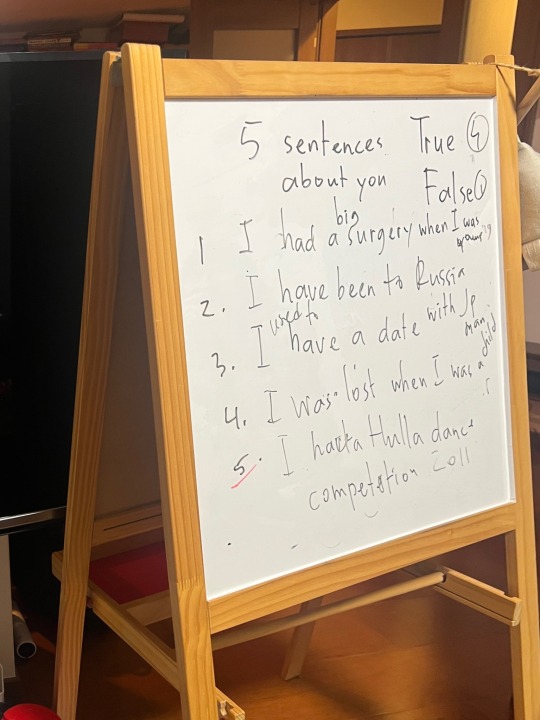 5 sentences True 4
about you False 1
1 I had a big surgery when I was young
2. I have been to Russia
3. I used to have a date with Jp man
4. I was lost when I was a child
5. I had a Hulla dance
competetion 2011